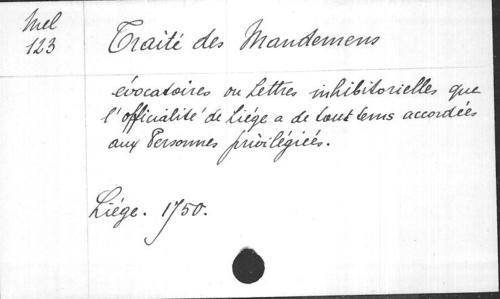 Mel
123
Traité des Mandemens
évocatoires ou Lettres inhibitorielles que
l'officialité de Liége a de tout tems accordées
aux Personnes privilégiées.
Liége. 1750.